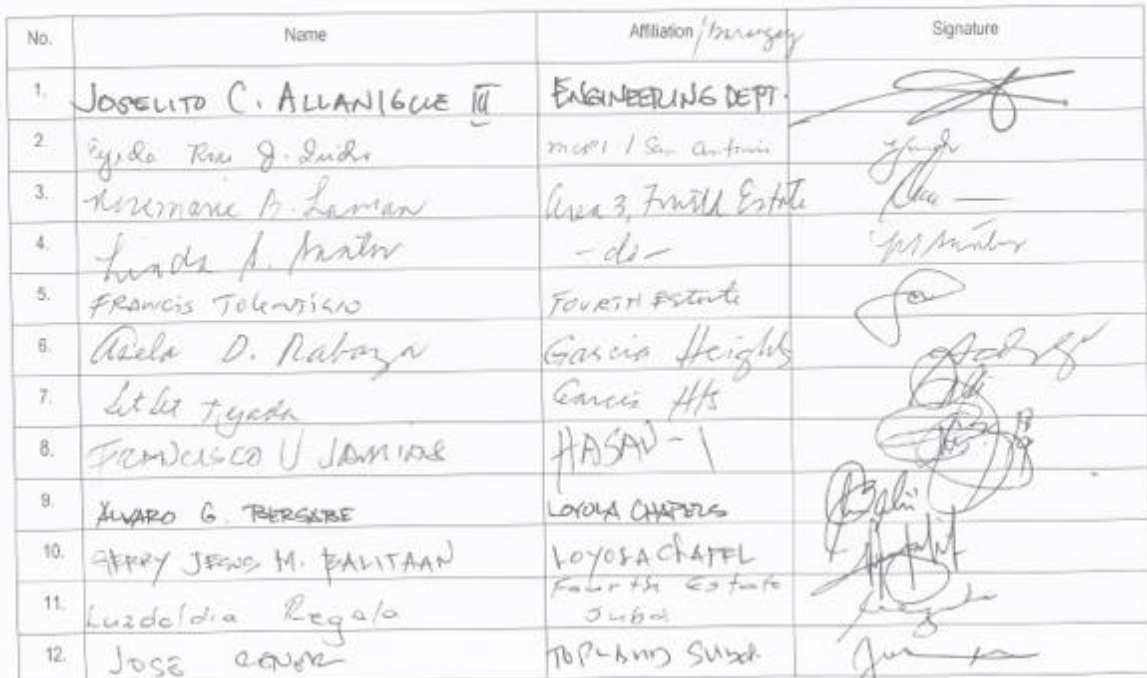 No. Name Affiliation / Barangay Signature
1. JOSELITO C. ALLANIGUE III ENGINEERING DEPT.
2. J. San Antonio
3. Rosemarie B. Laman Area 3, Fourth Estate
4. Linda A. Santos - do -
5. FRANCIS TOLENTINO FOURTH Estate
6. Asela D. Rabaza Garcia Heights
7. Let Let Tejada Garcia Hts
8. FRANCISCO V JAMIAS HASAV - 1
9. ALVARO G. BERSABE LOYOLA CHAPELS
10. GERRY JESUS M. BALITAAN LOYOLA CHAPEL
11. Luzdeldia Regala Fourth Estate
Subd
12. JOSE TOPLAND SUBD.